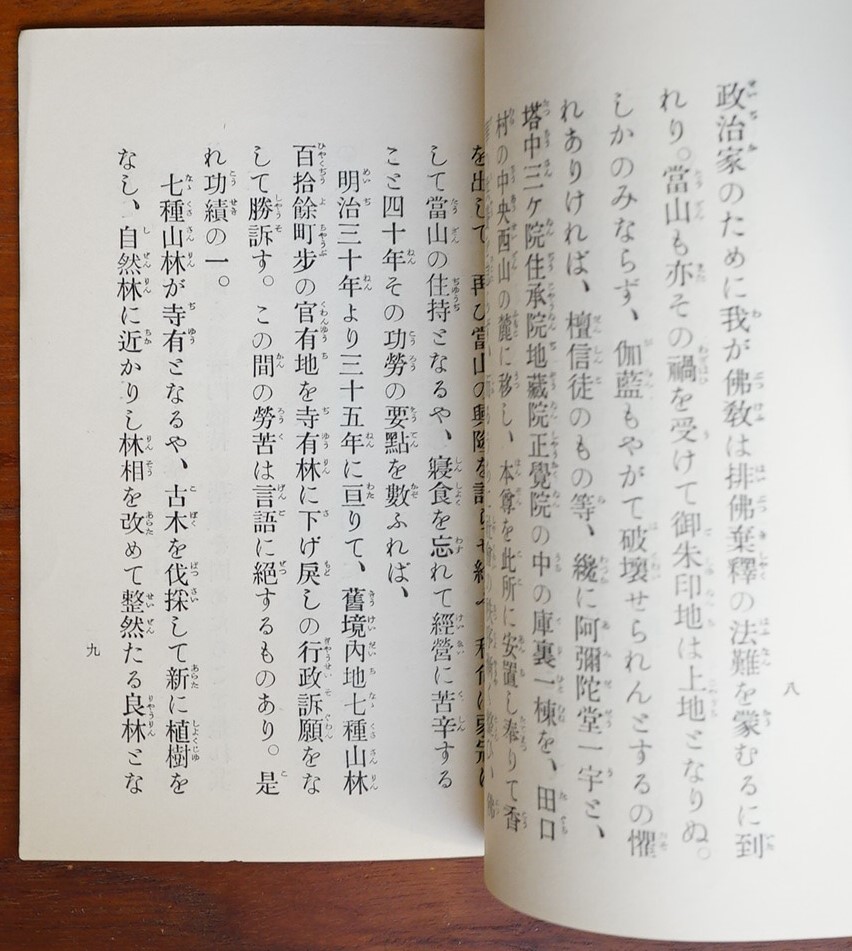 政治家のために我が佛敎は排佛棄釋の法難を蒙むるに到
れり。當山も亦その禍を受けて御朱印地は上地となりぬ。
しかのみならず、伽藍もやがて破壞せられんとするの懼
れありければ、檀信徒のもの等、纔に阿彌陀堂一宇と、
塔中三ケ院住承院地藏院正覺院の中の庫裏一棟を、田口
村の中央西山の麓に移し、本尊を此所に安置し奉りて香
八
を出して、再び當山の興隆を
して當山の住持となるや、寢食を忘れて經營に苦辛する
こと四十年その功勞の要點を數ふれば、
明治三十年より三十五年に亘りて、舊境內地七種山林
百拾餘町步の官有地を寺有林に下げ戾しの行政訴願をな
して勝訴す。この間の勞苦は言語に絕するものあり。是
れ功績の一。
七種山林が寺有となるや、古木を伐採して新に植樹を
なし、自然林に近かりし林相を改めて整然たる良林とな
九